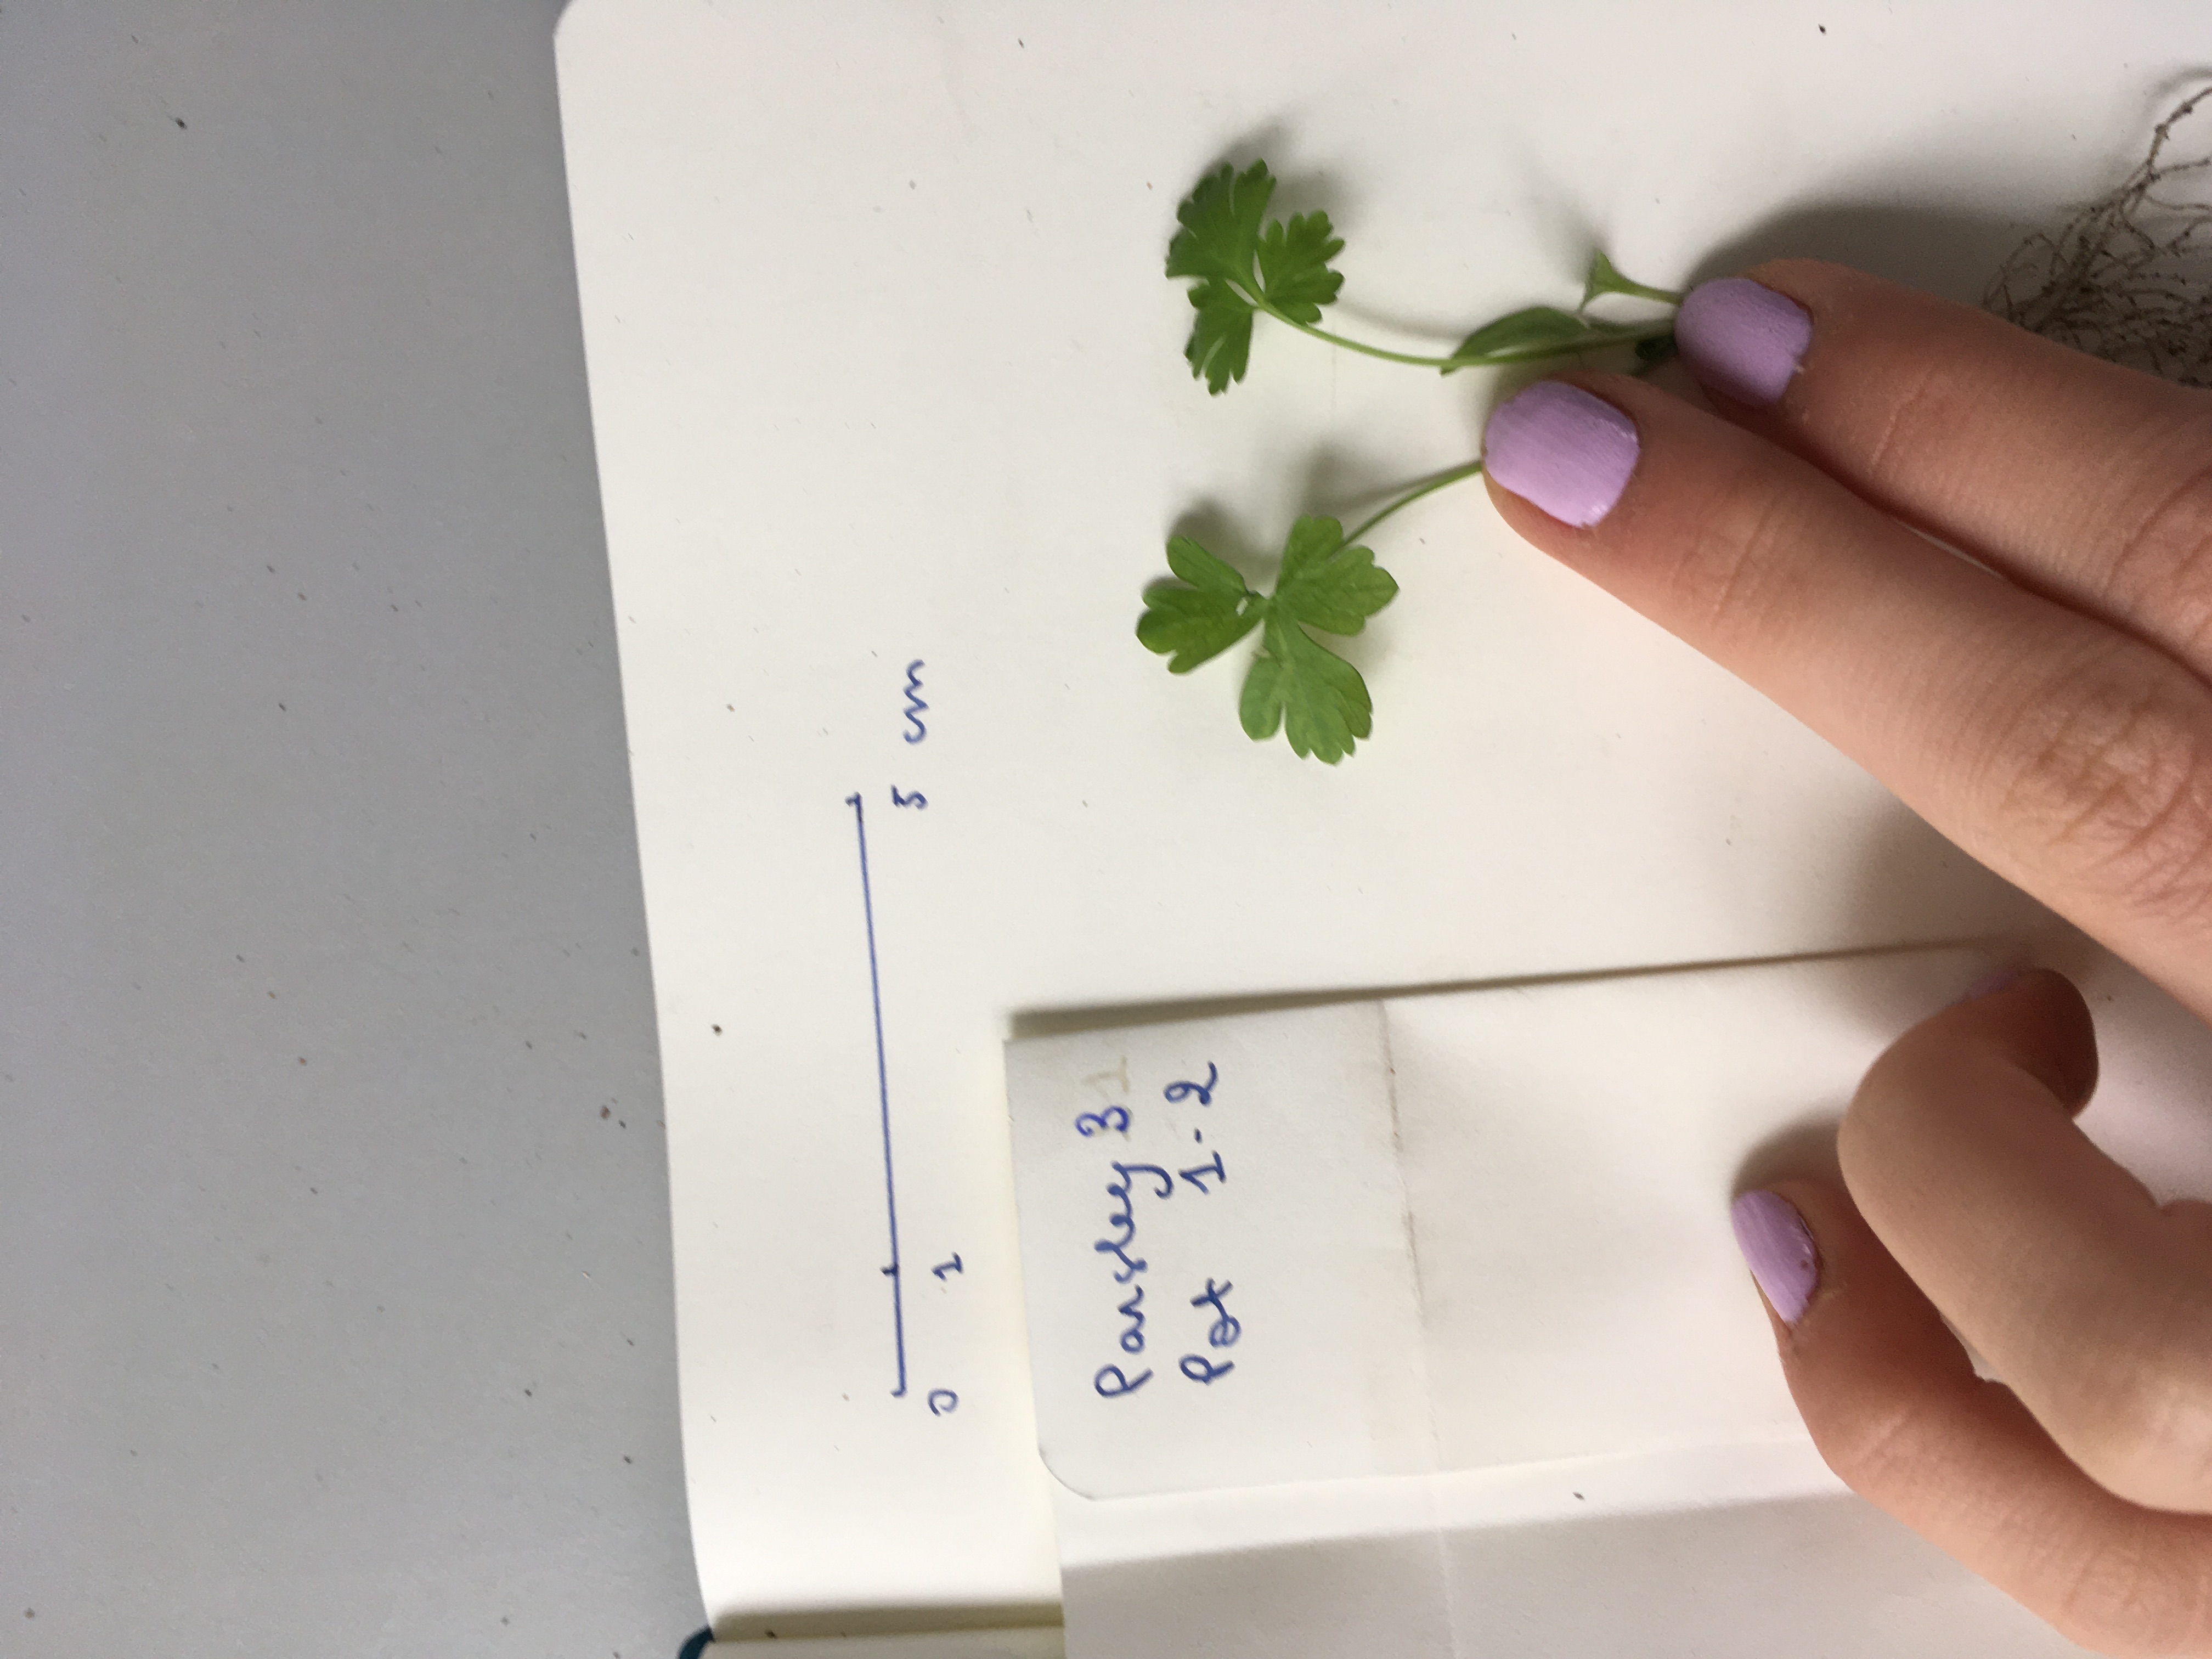 0 1 5 cm
Parsley 3 1
Pot 1-2